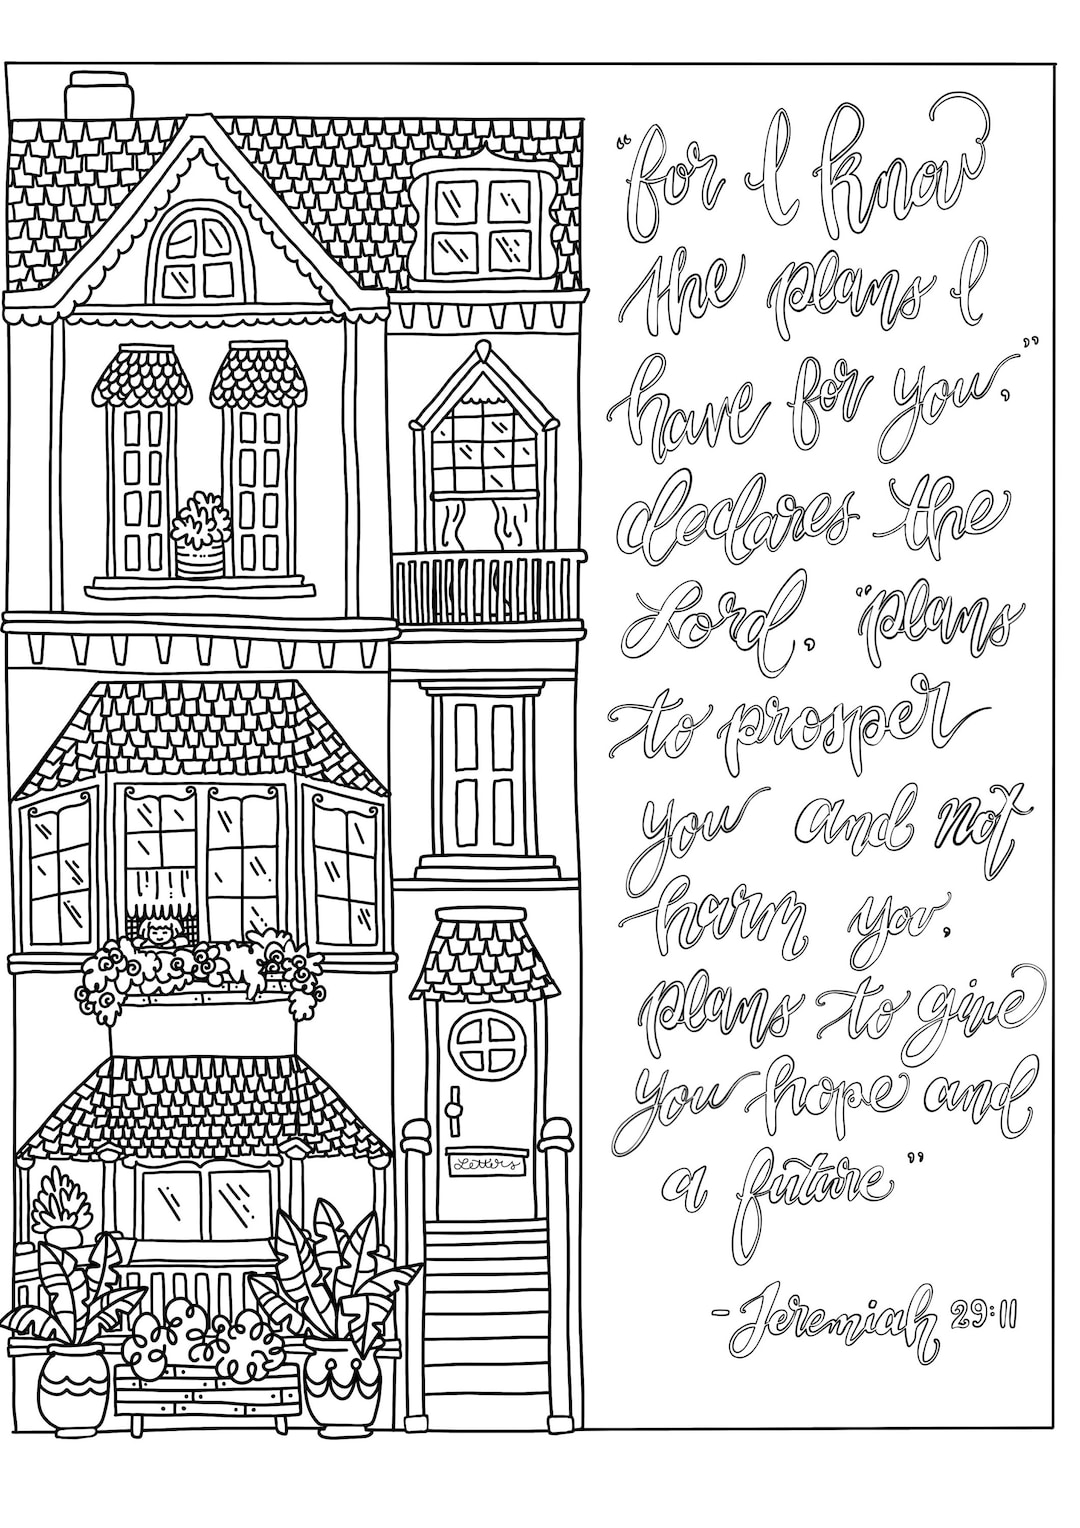 Letters
"for I know
the plans I
have for you,"
declares the
Lord, "plans
to prosper
you and not
harm you,
plans to give
you hope and
a future"
-Jeremiah 29:11